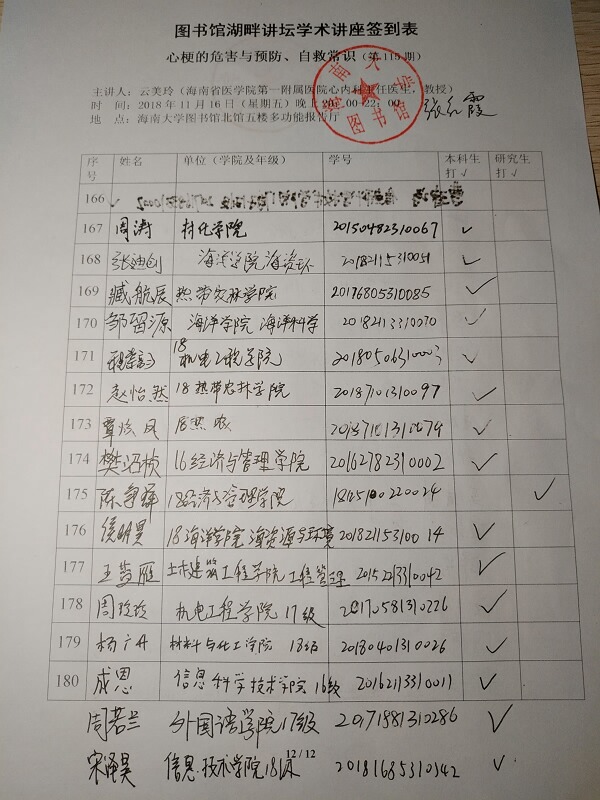 图书馆湖畔讲坛学术讲座签到表
心梗的危害与预防、自救常识（第115期）
主讲人：云美玲（海南省医学院第一附属医院心内科主任医生，教授）
时 间：2018年11月16日（星期五）晚上20:00-22:00
地 点：海南大学图书馆北馆五楼多功能报告厅
海南大学
图书馆
张红霞
序号 姓名 单位（学院及年级） 学号 本科生打✓ 研究生打✓
166
167 周涛 材化学院 20150482310067 ✓
168 张迪创 海洋学院海资环 20182115310051 ✓
169 臧航辰 热带农林学院 20176805310085 ✓
170 邹留源 海洋学院 海洋科学 20182113310070 ✓
171 18机电工程学院 ✓
172 赵怡然 18热带农林学院 20187101310097 ✓
173 覃焕凤 ✓
174 樊沼桢 16经济与管理学院 20162782310002 ✓
175 18经济与管理学院 18125100220024 ✓
176 侯明昊 18海洋学院海资源与环境 20182115310014 ✓
177 王莹雁 土木建筑工程学院工程管理 20152213310042 ✓
178 周玲玲 机电工程学院17级 20170581310226 ✓
179 杨广丹 材料与化工学院 18级 20180401310026 ✓
180 成恩 信息科学技术学院16级 20162113310011 ✓
周若兰 外国语学院17级 20171881310286 ✓
宋泽昊 信息技术学院18 20181685310342 ✓
12 / 12